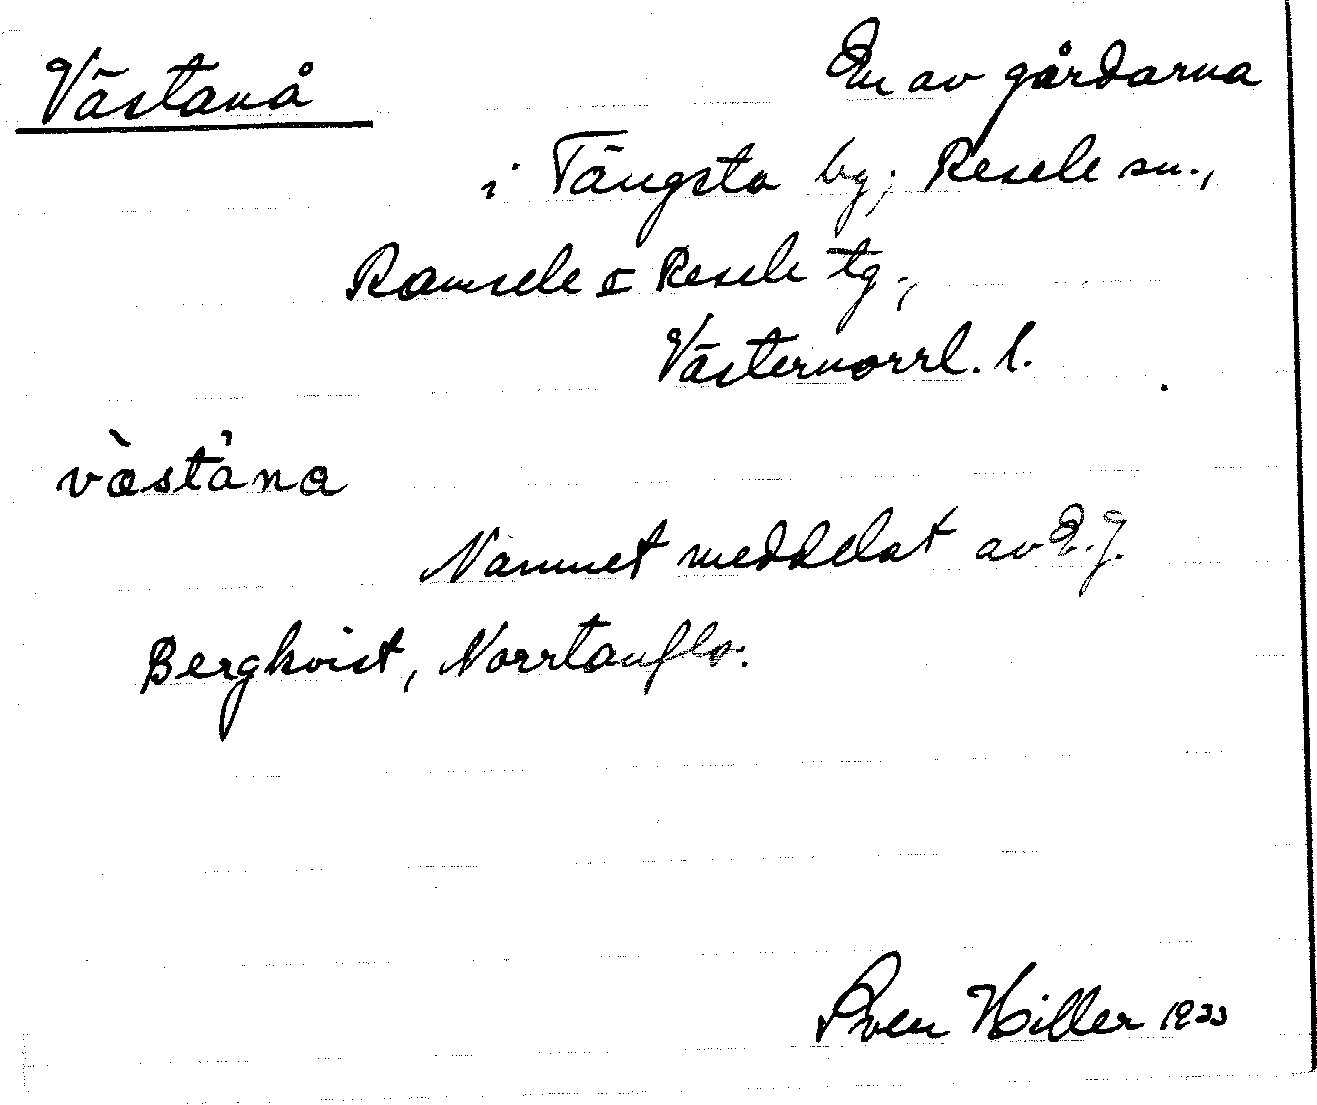 Västanå
En av gårdarna
i Tängsta by, Resele sn.,
Ramsele & Resele tg.,
Västernorrl. l.
væ̀stána
Namnet meddelat av E. J.
Bergkvist, Norrtannflo.
Sven Hiller 1933